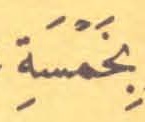 بِخَمْسَةِ